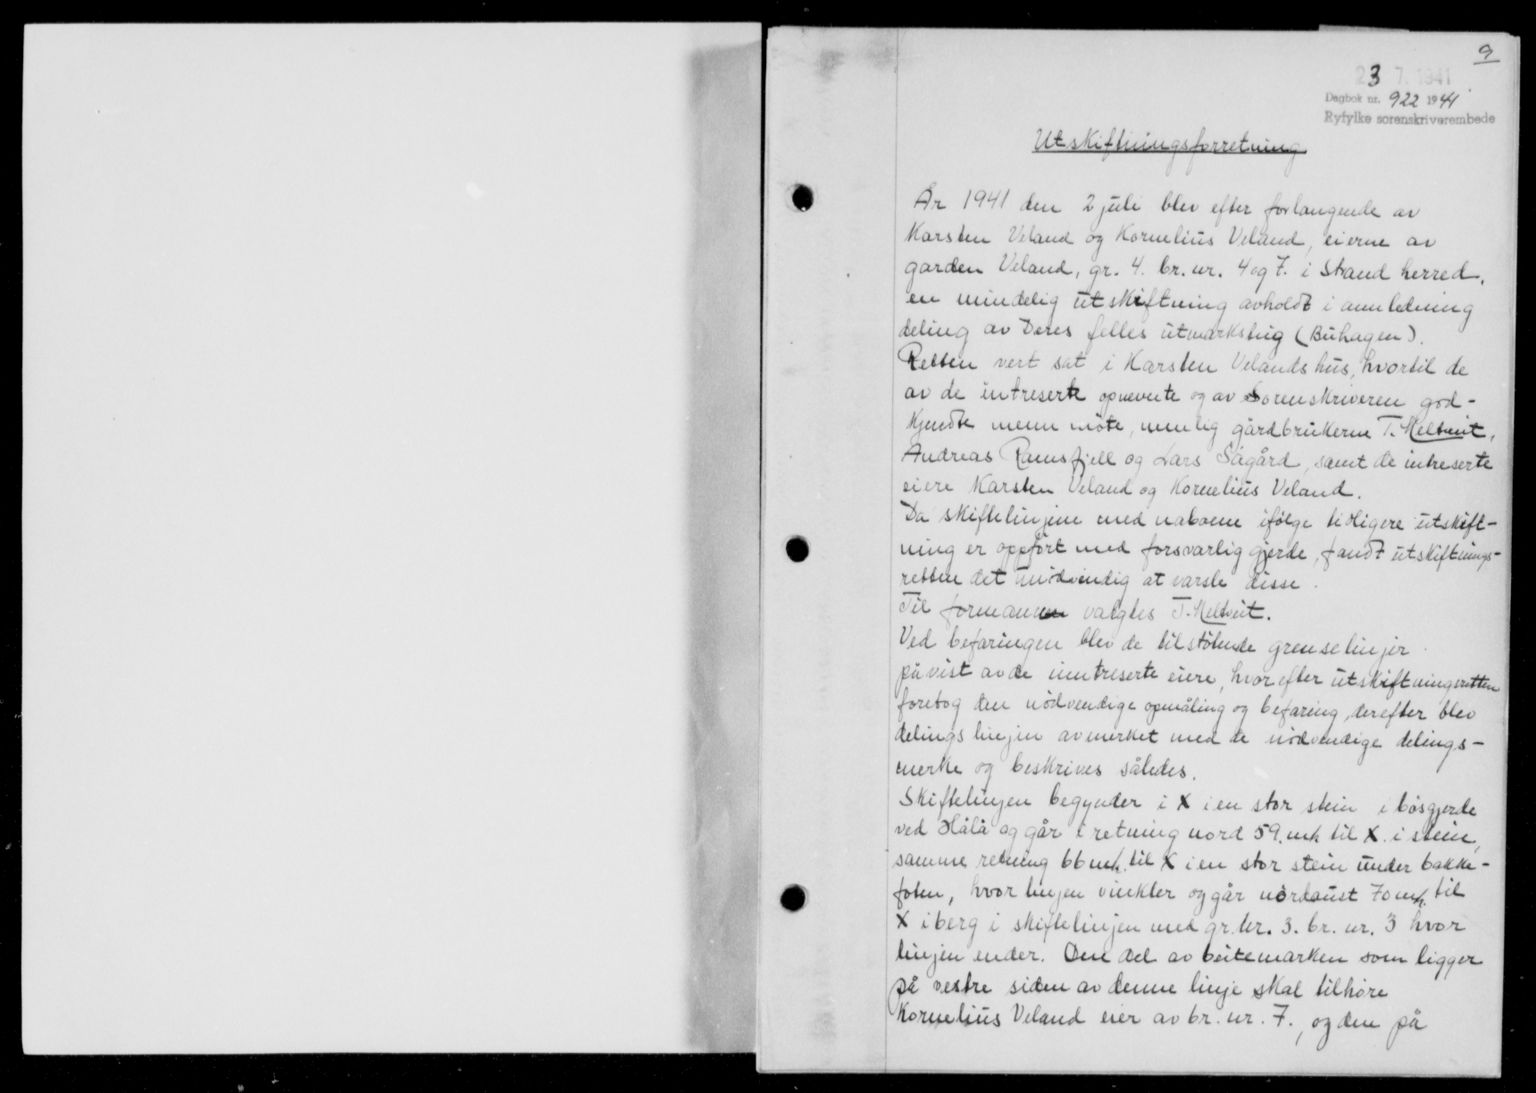 9
23 7. 1941
Dagbok nr. 922 1941
Ryfylke sorenskriverembede
Utskiftningsforretning
År 1941 den 2 juli blev efter forlangende av
Karsten Veland og Kornelius Veland, eierne av
garden Veland, gr. 4. br. nr. 4 og 7. i Strand herred,
en mindelig utskiftning avholdt i annledning
deling av Deres felles utmarksteig (Buhagen).
Retten vert sat i Karsten Velands hus, hvortil de
av de intreserte opnevnte og av Sorenskriveren god-
kjendte menn møte, nemlig gårdbrukerne T. Meltveit,
Andreas Ramsfjell og Lars Sågård, samt de intreserte
eiere Karsten Veland og Kornelius Veland.
Da skiftelinjene med naboene ifølge tidligere utskift-
ning er oppført med forsvarlig gjerde, fandt utskiftnings-
retten det unødvendig at varsle disse.
Til formann valgtes T. Meltveit.
Ved befaringen blev de tilstøtende grenselinjer
påvist av de inntreserte eiere, hvorefter utskiftningsretten
foretog den nødvendige opmåling og befaring, derefter blev
delingslinjen avmerket med de nødvendige delings-
merke og beskrives således.
Skiftelinjen begynder i X i en stor stein i bøsgjerde
ved Hålå og går i retning nord 59. mtr. til X. i stein,
samme retning 66 mtr. til X i en stor stein under bakke-
foten, hvor linjen vinkler og går nordaust 70 mtr. til
X i berg i skiftelinjen med gr. nr. 3. br. nr. 3 hvor
linjen ender. Den del av beitemarken som ligger
på vestre siden av denne linje skal tilhøre
Kornelius Veland eier av br. nr. 7., og den på